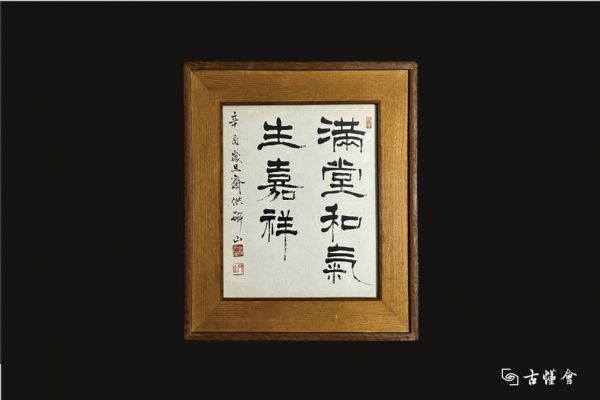 滿堂和氣
生嘉祥
辛酉歲旦齋供 山
古懂會